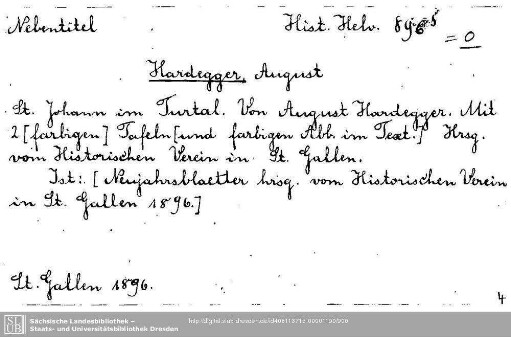 Nebentitel
Hist. Helv. 896
= 0
Hardegger, August
St. Johann im Turtal. Von August Hardegger. Mit
2 [farbigen] Tafeln [und farbigen Abb. im Text.] Hrsg.
vom Historischen Verein in St. Gallen.
Ist: [Neujahrsblaetter hrsg. vom Historischen Verein
in St. Gallen 1896.]
St. Gallen 1896.
4
SLUB
Sächsische Landesbibliothek –
Staats- und Universitätsbibliothek Dresden